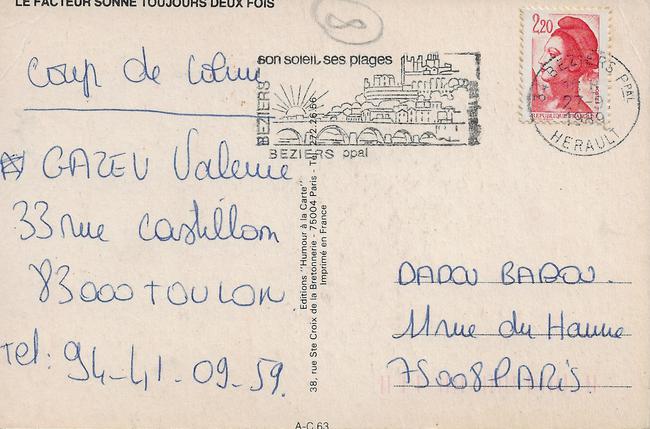 LE FACTEUR SONNE TOUJOURS DEUX FOIS
8
Coup de
GAZEU Valerie
33 rue Castillon
83000 TOULON
Tel: 94-41-09-59.
son soleil, ses plages
BEZIERS
BEZIERS ppal
2,20
REPUBLIQUE FRANCAISE
34 BEZIERS PPAL
HERAULT
Editions "Humour à la Carte"
38, rue Ste Croix de la Bretonnerie - 75004 Paris - Tel. 272.26.66
Imprimé en France
DADOU BADOU.
11 rue du Havre
75008 PARIS.
A-C.63